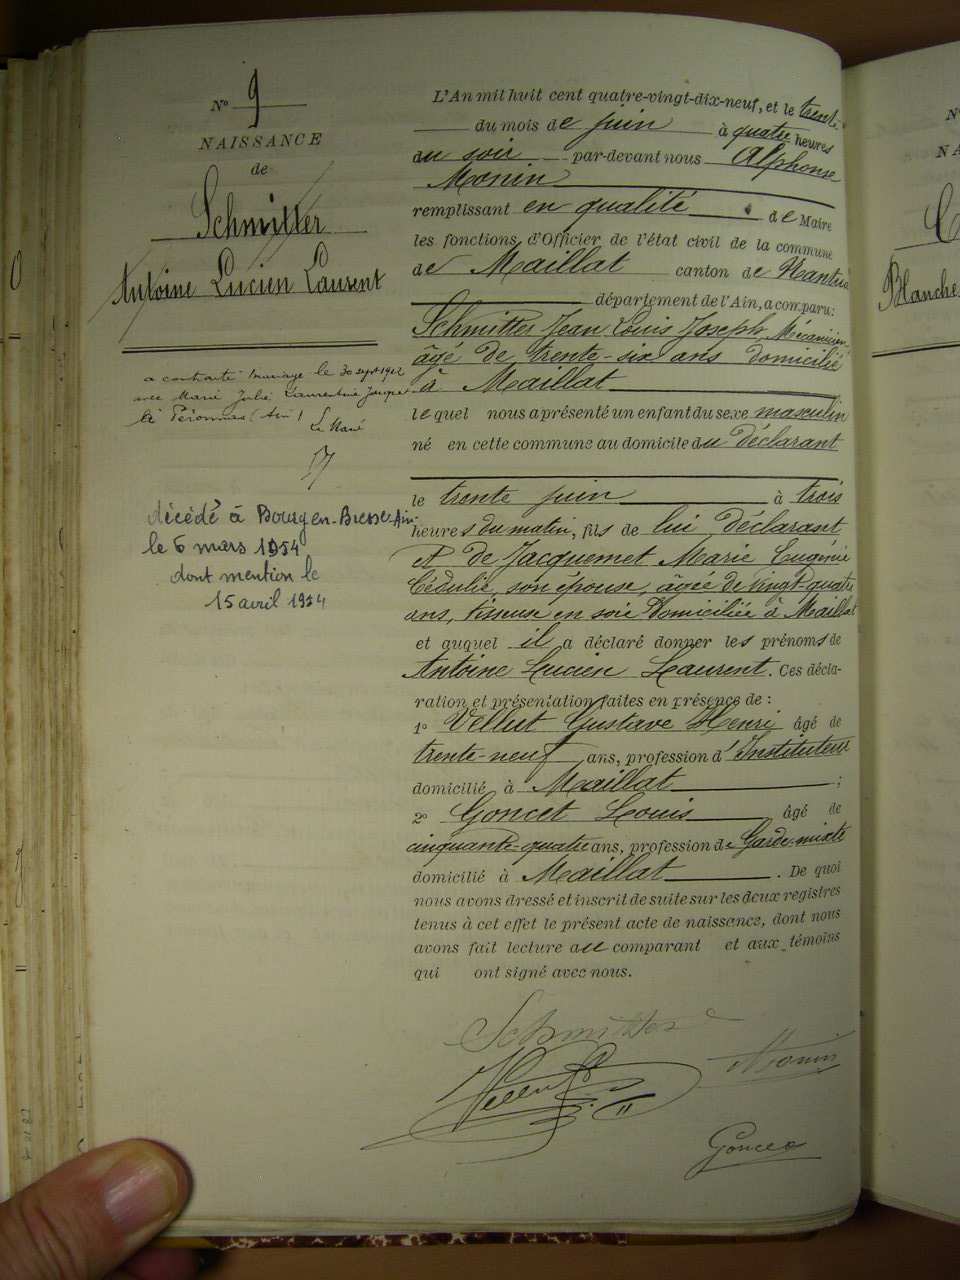 N° 9
NAISSANCE
de
Schmitter
Antoine Lucien Laurent
a contracté mariage le 30 sept 1922
avec Marie Julie Laurentine
à Péronnas (Ain)
Le Maire
décédé à Bourg-en-Bresse-Ain-
le 6 mars 1954
dont mention le
15 avril 1954
L'An mil huit cent quatre-vingt-dix-neuf, et le trente
du mois de juin à quatre heures
du soir par-devant nous Alphonse
Monin
remplissant en qualité de Maire
les fonctions d'Officier de l'état civil de la commune
de Maillat canton de Nantua
département de l'Ain, a comparu:
Schmitter Jean Louis Joseph, Mécanicien
âgé de trente-six ans domicilié
à Maillat
lequel nous a présenté un enfant du sexe masculin
né en cette commune au domicile du déclarant
le trente juin à trois
heures du matin, fils de lui déclarant
et de Jacquemet Marie Eugénie
Cédulie, son épouse, âgée de vingt-quatre
ans, tisseuse en soie domiciliée à Maillat
et auquel il a déclaré donner les prénoms de
Antoine Lucien Laurent. Ces décla-
ration et présentation faites en présence de :
1° Vellut Gustave Henri âgé de
trente-neuf ans, profession d'Instituteur
domicilié à Maillat ;
2° Goncet Louis âgé de
cinquante-quatre ans, profession de Garde-mixte
domicilié à Maillat . De quoi
nous avons dressé et inscrit de suite sur les deux registres
tenus à cet effet le présent acte de naissance, dont nous
avons fait lecture au comparant et aux témoins
qui ont signé avec nous.
Schmitter
Vellut
Monin
Goncet
N°
NA
Blanche